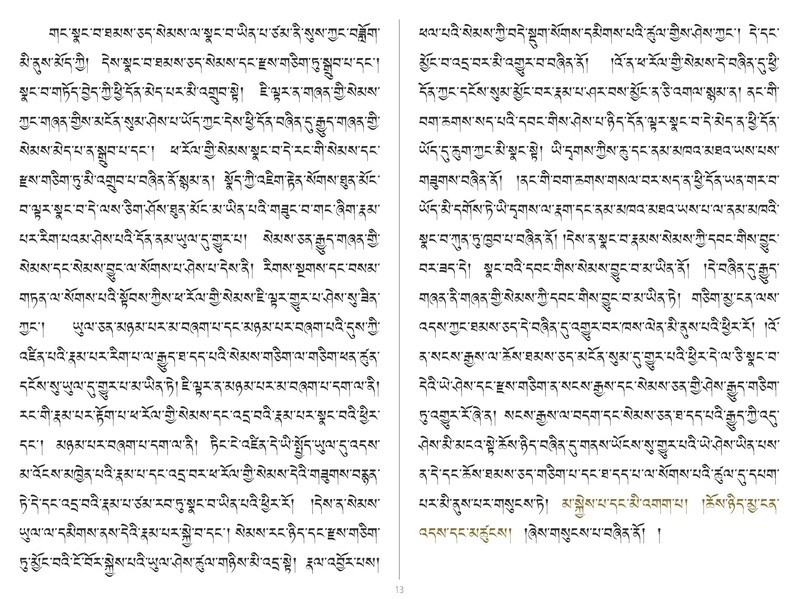 གང་སྣང་བ་ཐམས་ཅད་སེམས་ལ་སྣང་བ་ཡིན་པ་ཙམ་ནི་སུས་ཀྱང་བཟློག་
མི་ནུས་མོད་ཀྱི། དེས་སྣང་བ་ཐམས་ཅད་སེམས་དང་རྫས་གཅིག་ཏུ་སྒྲུབ་པ་དང་།
སྣང་བ་གཏོད་བྱེད་ཀྱི་ཕྱི་དོན་མེད་པར་མི་འགྲུབ་སྟེ། ཇི་ལྟར་ན་གཞན་གྱི་སེམས་
ཀྱང་གཞན་གྱིས་མངོན་སུམ་ཤེས་པ་ཡོད་ཀྱང་དེས་ཕྱི་དོན་བཞིན་དུ་རྒྱུད་གཞན་གྱི་
སེམས་མེད་པ་ན་སྒྲུབ་པ་དང་། ཕ་རོལ་གྱི་སེམས་སྣང་བ་དེ་རང་གི་སེམས་དང་
རྫས་གཅིག་ཏུ་མི་འགྲུབ་པ་བཞིན་ནོ་སྙམ་ན། སྣོད་ཀྱི་འཇིག་རྟེན་སོགས་ཐུན་མོང་
བ་ལྟར་སྣང་བ་དེ་ལས་ཅིག་ཤོས་ཐུན་མོང་མ་ཡིན་པའི་གཟུང་བ་གང་ཞིག་རྣམ་
པར་རིག་པའམ་ཤེས་པའི་དོན་ནམ་ཡུལ་དུ་གྱུར་པ། སེམས་ཅན་རྒྱུད་གཞན་གྱི་
སེམས་དང་སེམས་བྱུང་ལ་སོགས་པ་ཤེས་པ་དེས་ནི། རིགས་སྔགས་དང་བསམ་
གཏན་ལ་སོགས་པའི་སྟོབས་ཀྱིས་ཕ་རོལ་གྱི་སེམས་ཇི་ལྟར་གྱུར་པ་ཤེས་སུ་ཟིན་
ཀྱང་། ཡུལ་ཅན་མཉམ་པར་མ་བཞག་པ་དང་མཉམ་པར་བཞག་པའི་དུས་ཀྱི་
འཛིན་པའི་རྣམ་པར་རིག་པ་ལ་རྒྱུད་ཐ་དད་པའི་སེམས་གཅིག་ལ་གཅིག་ཕན་ཚུན་
དངོས་སུ་ཡུལ་དུ་གྱུར་པ་མ་ཡིན་ཏེ། ཇི་ལྟར་ན་མཉམ་པར་མ་བཞག་པ་དག་ལ་ནི།
རང་གི་རྣམ་པར་རྟོག་པ་ཕ་རོལ་གྱི་སེམས་དང་འདྲ་བའི་རྣམ་པར་སྣང་བའི་ཕྱིར་
དང་། མཉམ་པར་བཞག་པ་དག་ལ་ནི། ཏིང་ངེ་འཛིན་དེ་ཡི་སྤྱོད་ཡུལ་དུ་འདས་
མ་འོངས་མཁྱེན་པའི་རྣམ་པ་དང་འདྲ་བར་ཕ་རོལ་གྱི་སེམས་དེའི་གཟུགས་བརྙན་
ཏེ་དེ་དང་འདྲ་བའི་རྣམ་པ་ཙམ་རབ་ཏུ་སྣང་བ་ཡིན་པའི་ཕྱིར་རོ། །དེས་ན་སེམས་
ཡུལ་ལ་དམིགས་ནས་དེའི་རྣམ་པར་སྐྱེ་བ་དང་། སེམས་རང་ཉིད་དང་རྫས་གཅིག་
ཏུ་མྱོང་བའི་ངོ་བོར་སྐྱེས་པའི་ཡུལ་ཤེས་ཚུལ་གཉིས་མི་འདྲ་སྟེ། རྣལ་འབྱོར་པས།
ཕལ་པའི་སེམས་ཀྱི་བདེ་སྡུག་སོགས་དམིགས་པའི་ཚུལ་གྱིས་ཤེས་ཀྱང་། དེ་དང་
མྱོང་བ་འདྲ་བར་མི་འགྱུར་བ་བཞིན་ནོ། །འོ་ན་ཕ་རོལ་གྱི་སེམས་དེ་བཞིན་དུ་ཕྱི་
དོན་ཀྱང་དངོས་སུམ་མྱོང་བར་རྣམ་པ་ཤར་བས་མྱོང་ན་ཅི་འགལ་སྙམ་ན། ནང་གི་
བག་ཆགས་སད་པའི་དབང་གིས་ཤེས་པ་ཉིད་དོན་ལྟར་སྣང་བ་དེ་མེད་ན་ཕྱི་དོན་
ཡོད་དུ་ཆུག་ཀྱང་མི་སྣང་སྟེ། ཡི་དྭགས་ཀྱིས་ཆུ་དང་ནམ་མཁའ་མཐའ་ཡས་པས་
གཟུགས་བཞིན་ནོ། །ནང་གི་བག་ཆགས་གསལ་བར་སད་ན་ཕྱི་དོན་ཡན་གར་བ་
ཡོད་མི་དགོས་ཏེ་ཡི་དྭགས་ལ་རྣག་དང་ནམ་མཁའ་མཐའ་ཡས་པ་ལ་ནམ་མཁའི་
སྣང་བ་ཀུན་ཏུ་ཁྱབ་པ་བཞིན་ནོ། །དེས་ན་སྣང་བ་རྣམས་སེམས་ཀྱི་དབང་གིས་བྱུང་
བར་ཟད་དེ། སྣང་བའི་དབང་གིས་སེམས་བྱུང་བ་མ་ཡིན་ནོ། །དེ་བཞིན་དུ་རྒྱུད་
གཞན་ནི་གཞན་གྱི་སེམས་ཀྱི་དབང་གིས་བྱུང་བ་མ་ཡིན་ཏེ། གཅིག་མྱ་ངན་ལས་
འདས་ཀྱང་ཐམས་ཅད་དེ་བཞིན་དུ་འགྱུར་བར་ཁས་ལེན་མི་ནུས་པའི་ཕྱིར་རོ། །འོ་
ན་སངས་རྒྱས་ལ་ཆོས་ཐམས་ཅད་མངོན་སུམ་དུ་གྱུར་པའི་ཕྱིར་དེ་ལ་ཅི་སྣང་བ་
དེའི་ཡེ་ཤེས་དང་རྫས་གཅིག་ན་སངས་རྒྱས་དང་སེམས་ཅན་གྱི་ཤེས་རྒྱུད་གཅིག་
ཏུ་འགྱུར་རོ་ཞེ་ན། སངས་རྒྱས་ལ་བདག་དང་སེམས་ཅན་ཐ་དད་པའི་རྒྱུད་ཀྱི་འདུ་
ཤེས་མི་མངའ་སྟེ་ཆོས་ཉིད་བཞིན་དུ་གནས་ཡོངས་སུ་གྱུར་པའི་ཡེ་ཤེས་ཡིན་པས་
ན་དེ་དང་ཆོས་ཐམས་ཅད་གཅིག་པ་དང་ཐ་དད་པ་ལ་སོགས་པའི་ཚུལ་དུ་དཔག་
པར་མི་ནུས་པར་གསུངས་ཏེ། མ་སྐྱེས་པ་དང་མི་འགག་པ། །ཆོས་ཉིད་མྱ་ངན་
འདས་དང་མཚུངས། །ཞེས་གསུངས་པ་བཞིན་ནོ། །
13